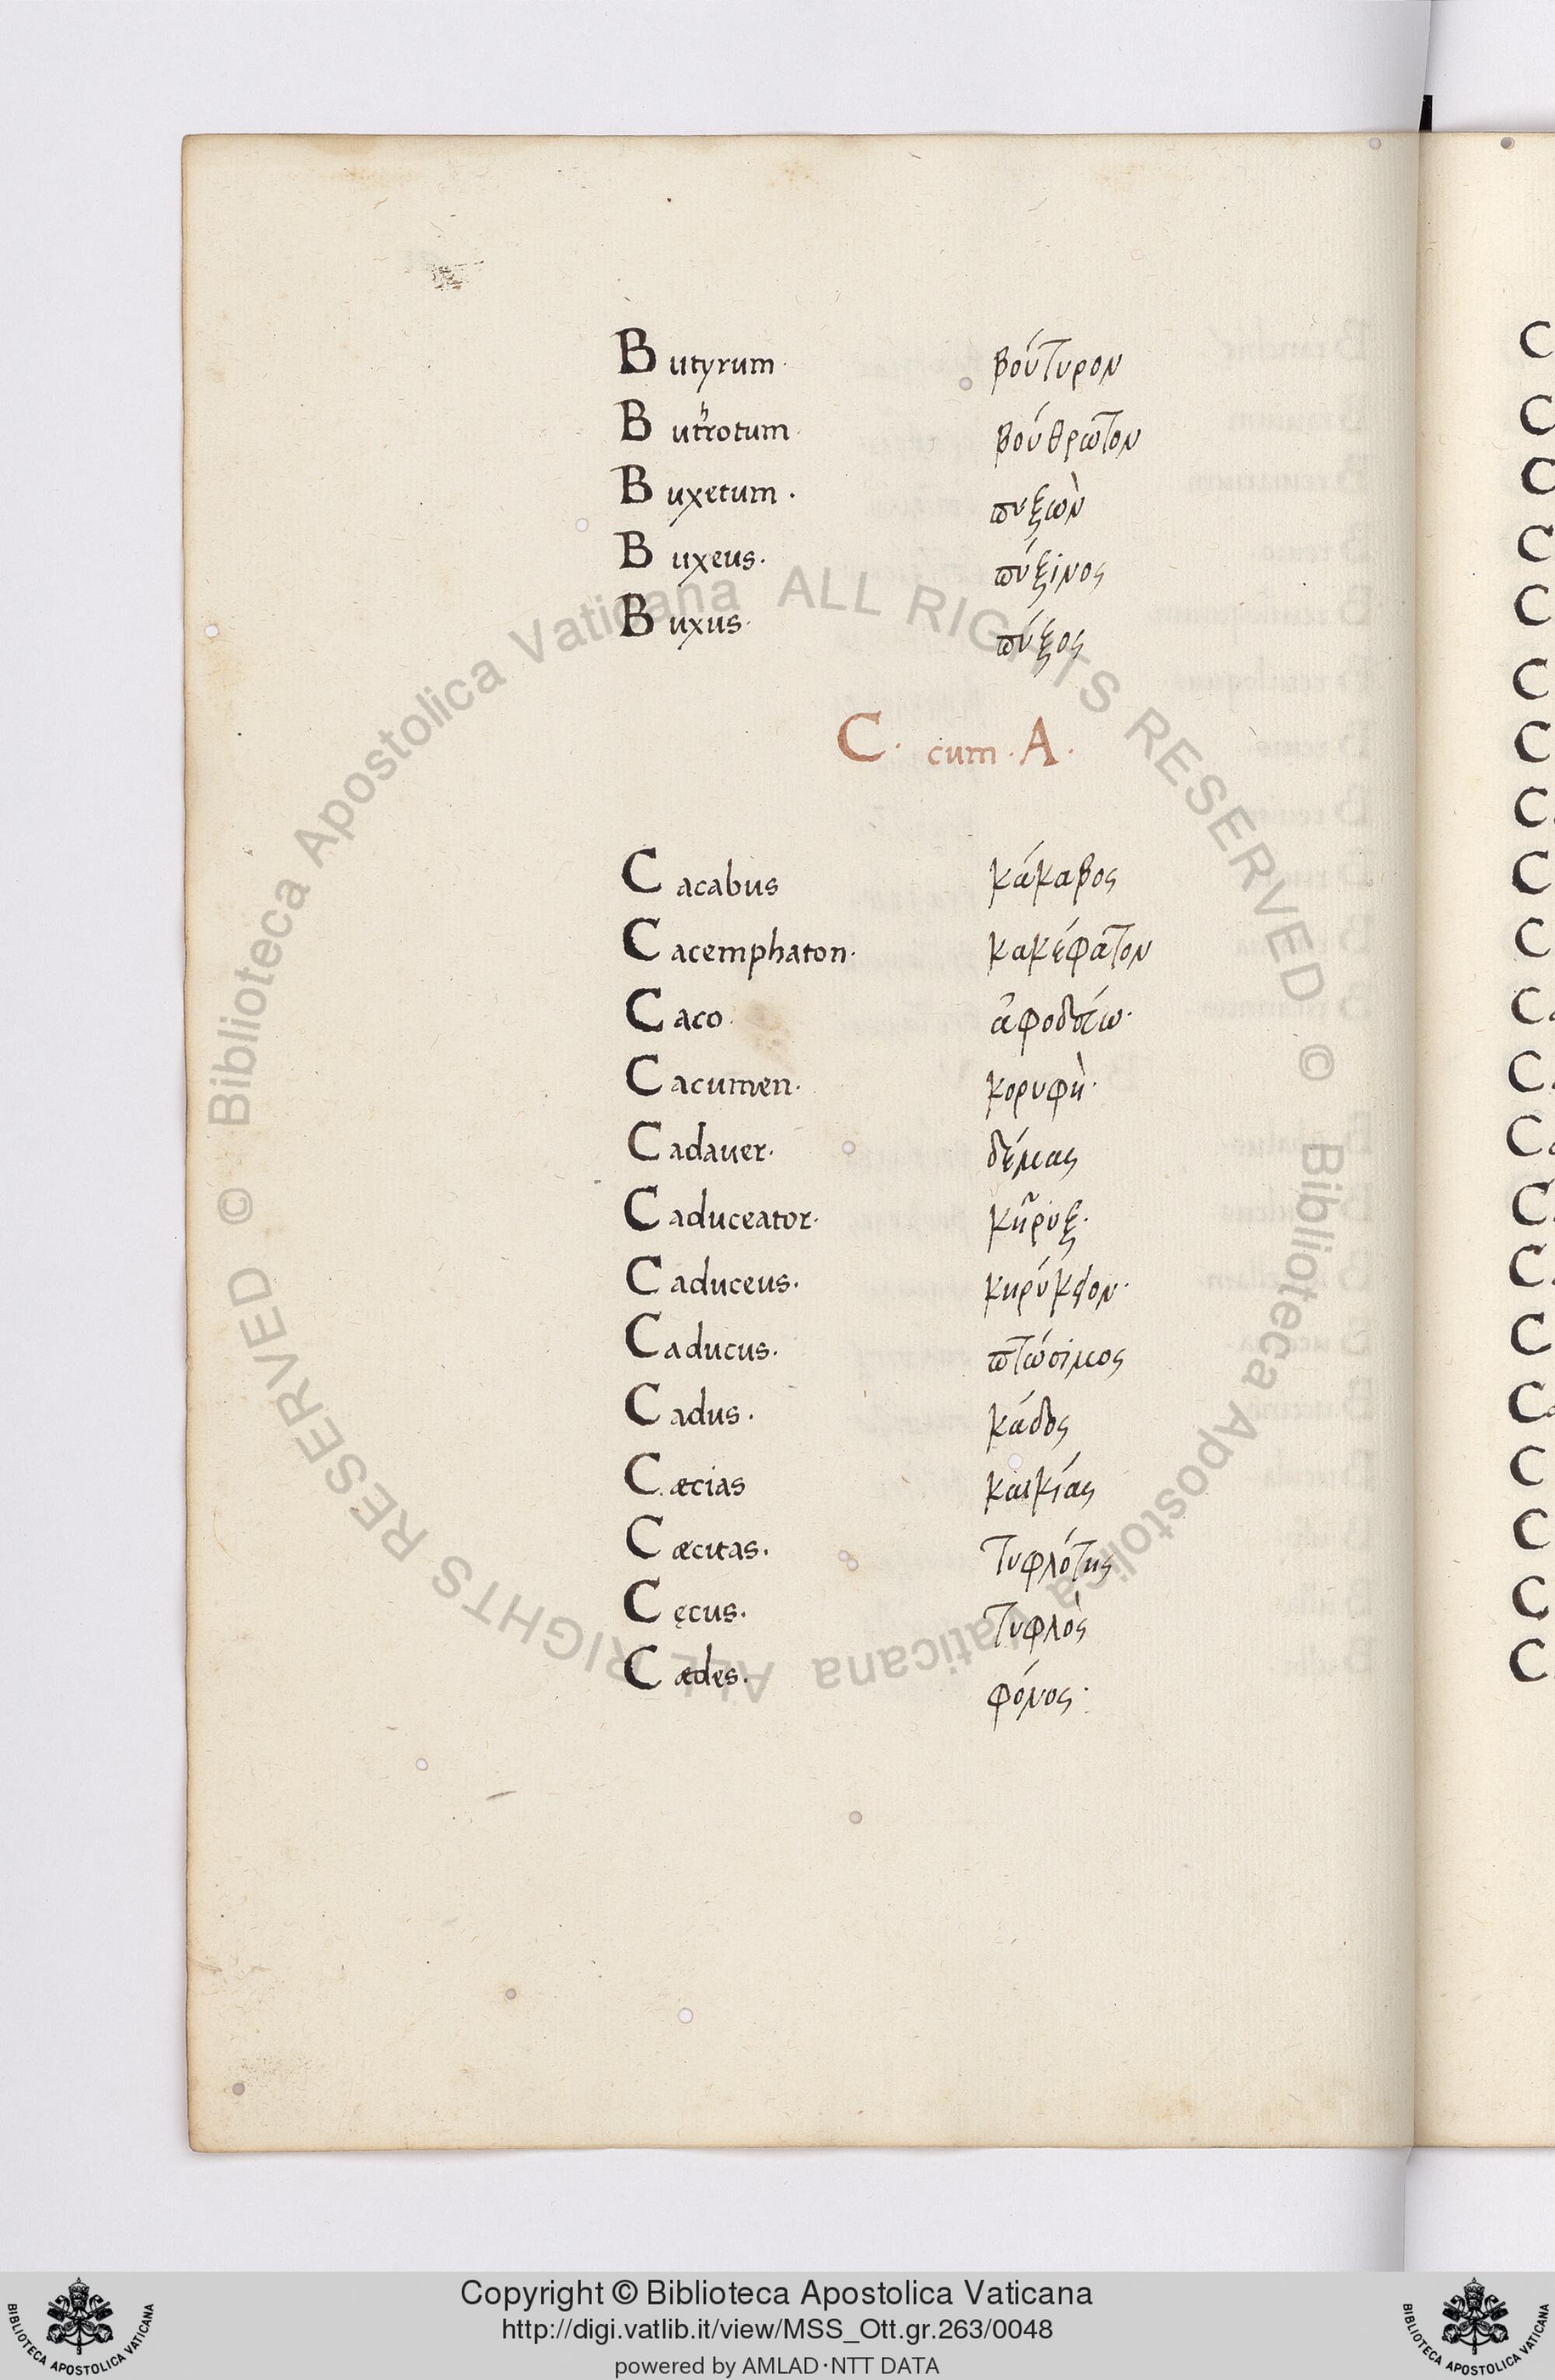 Butyrum· βούτυρον
Buthrotum βούθρωτον
Buxetum· πυξὼν
Buxeus· πύξινος
Buxus· πύξος
C· cum· A·
Cacabus κάκαβος
Cacemphaton· κακέφατον
Caco· ἀφοδεύω·
Cacumen· κορυφὴ·
Cadauer· δέμας
Caduceator· κῆρυξ·
Caduceus· κηρύκειον·
Caducus· πτώσιμος
Cadus· κάδος
Cæcias καικίας
Cæcitas· τυφλότης
Cęcus· τυφλὸς
Cædes· φόνος·
© Biblioteca Apostolica Vaticana ALL RIGHTS RESERVED © Biblioteca Apostolica Vaticana ALL RIGHTS RESERVED
Copyright © Biblioteca Apostolica Vaticana
http://digi.vatlib.it/view/MSS_Ott.gr.263/0048
powered by AMLAD·NTT DATA
BIBLIOTECA APOSTOLICA VATICANA
BIBLIOTECA APOSTOLICA VATICANA